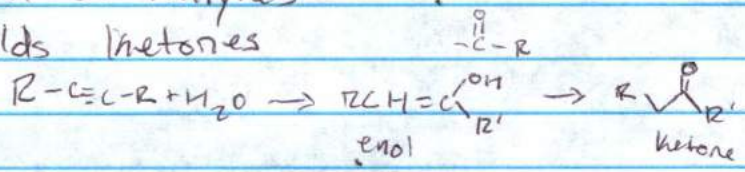 lds Ketones
O
-C-R
R-C≡C-R+H₂O → RCH=C OH R' → R O R'
enol ketone